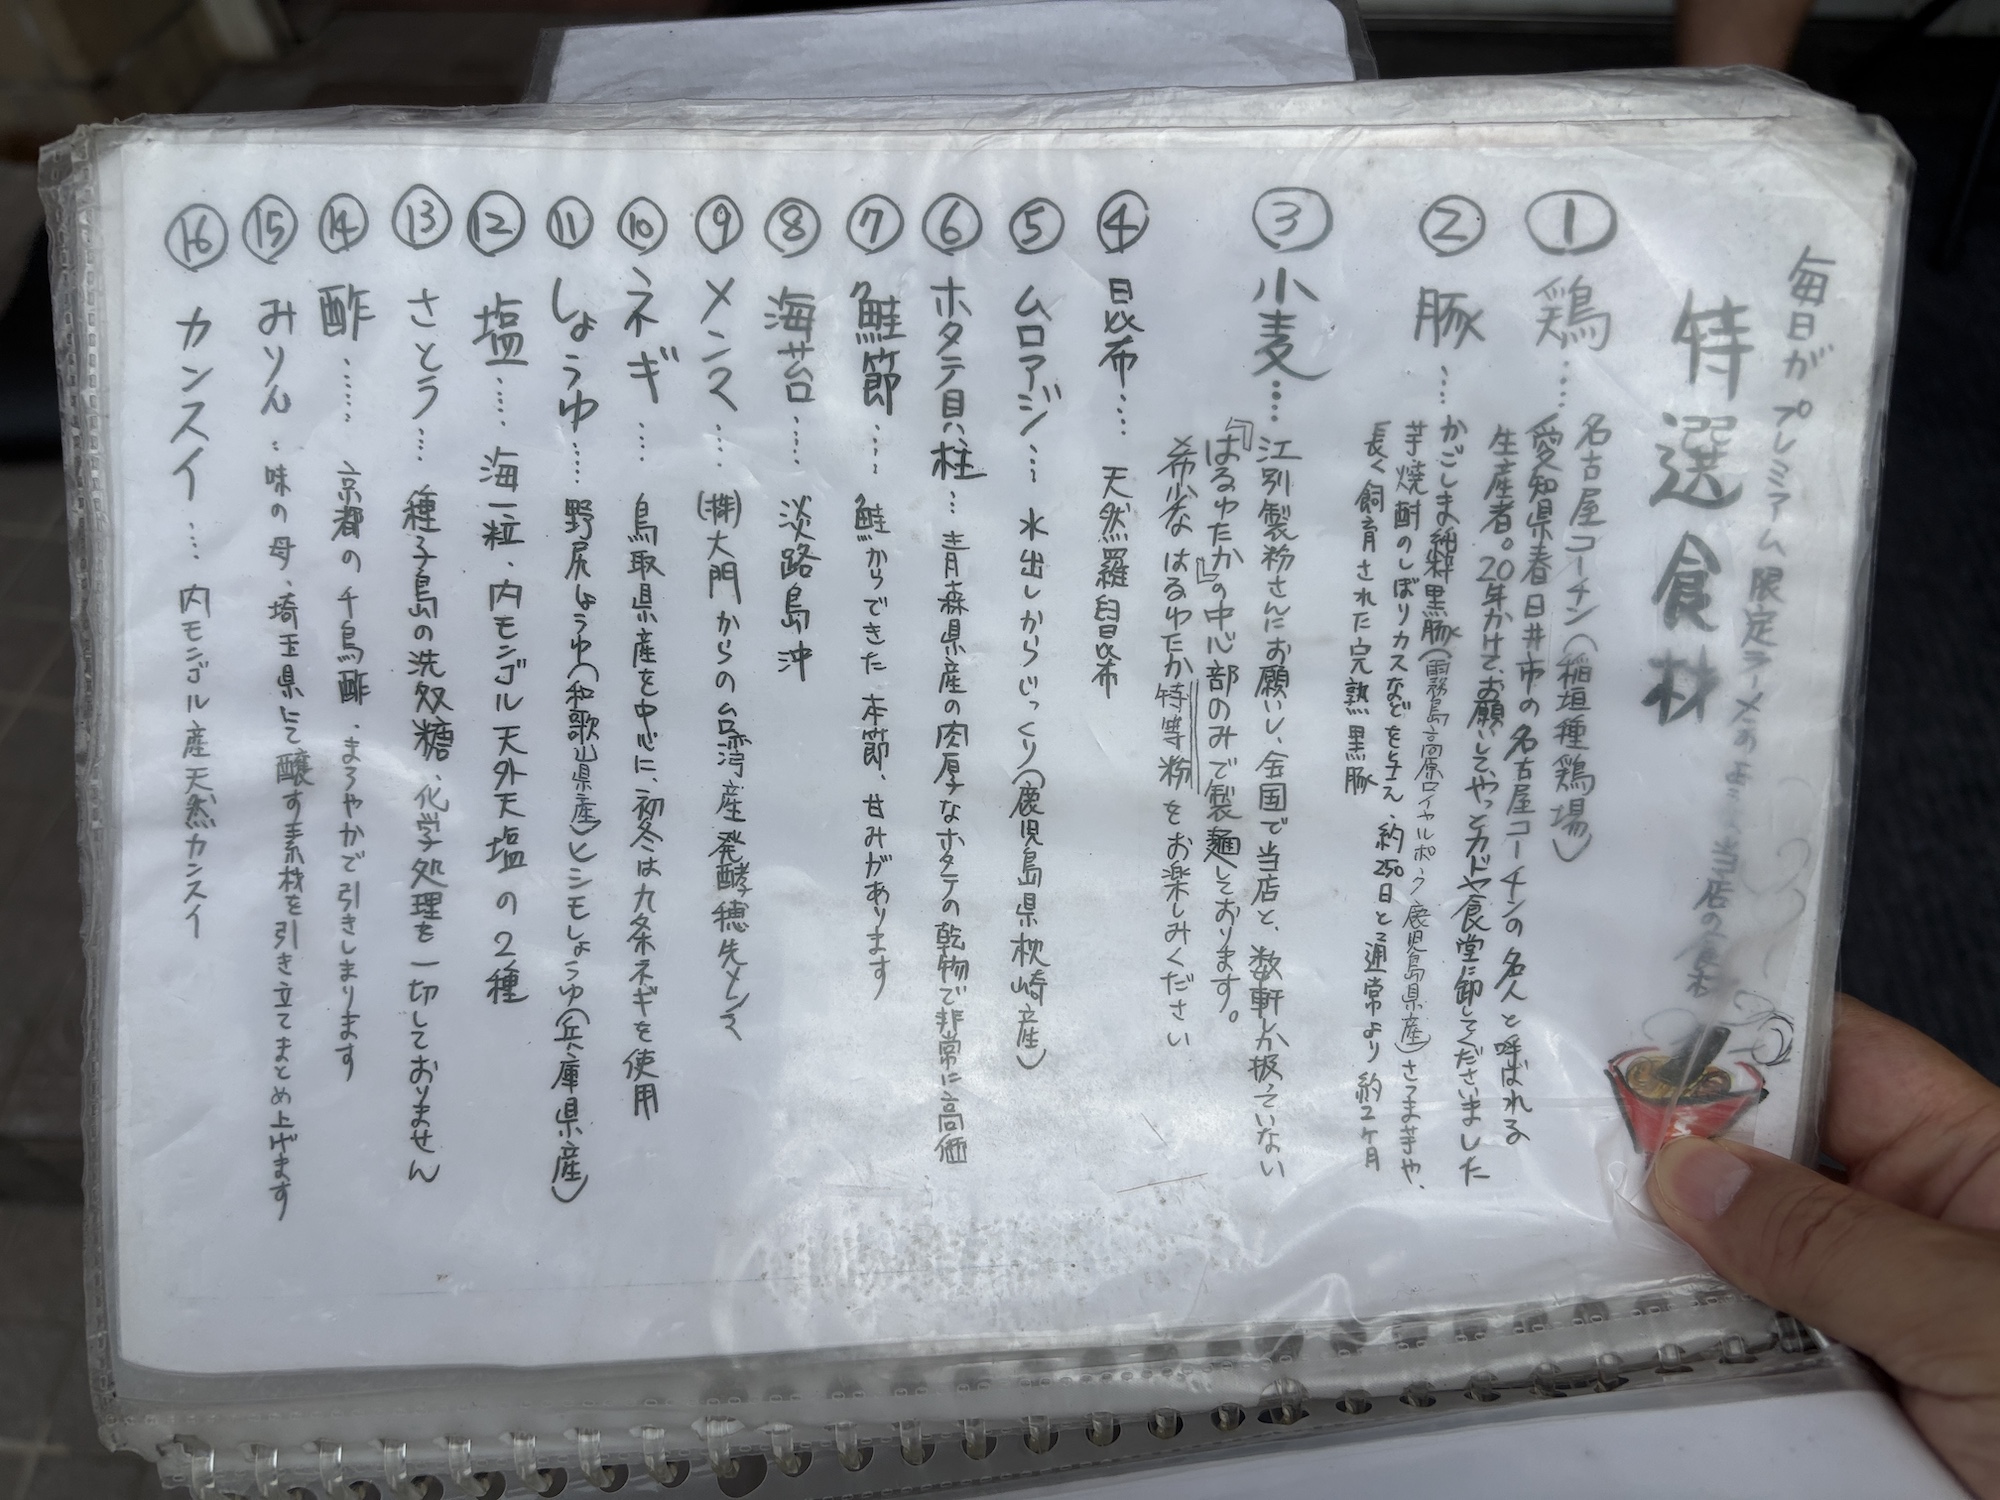 毎日が プレミアム限定ラーメンのような、当店の食材
特選食材
① 鶏…名古屋コーチン（稲垣種鶏場）
愛知県春日井市の名古屋コーチンの名人と呼ばれる
生産者。20年かけて、お願いして、やっとカドヤ食堂に卸してくださいました
② 豚…かごしま純粋黒豚（霧島高原ロイヤルポーク 鹿児島県産）さつま芋や、
芋焼酎のしぼりカスなどを与え、約250日と通常より約2ヶ月
長く飼育された完熟黒豚
③ 小麦…江別製粉さんにお願いし、全国で当店と、数軒しか扱っていない
『はるゆたか』の中心部のみで製麺しております。
希少な はるゆたか特等粉をお楽しみください
④ 昆布… 天然羅臼昆布
⑤ ムロアジ… 水出しからじっくり（鹿児島県枕崎産）
⑥ ホタテ貝柱… 青森県産の肉厚なホタテの乾物で非常に高価
⑦ 鮭節… 鮭からできた本節、甘みがあります
⑧ 海苔… 淡路島沖
⑨ メンマ… （株）大門からの台湾産発酵穂先メンマ
⑩ ネギ… 鳥取県産を中心に、初冬は九条ネギを使用
⑪ しょうゆ… 野尻しょうゆ（和歌山県産）ヒシモしょうゆ（兵庫県産）
⑫ 塩… 海一粒、内モンゴル天外天塩の2種
⑬ さとう… 種子島の洗双糖、化学処理を一切しておりません
⑭ 酢… 京都の千鳥酢、まろやかで引きしまります
⑮ みりん… 味の母、埼玉県にて醸す素材を引き立てまとめ上げます
⑯ カンスイ… 内モンゴル産天然カンスイ